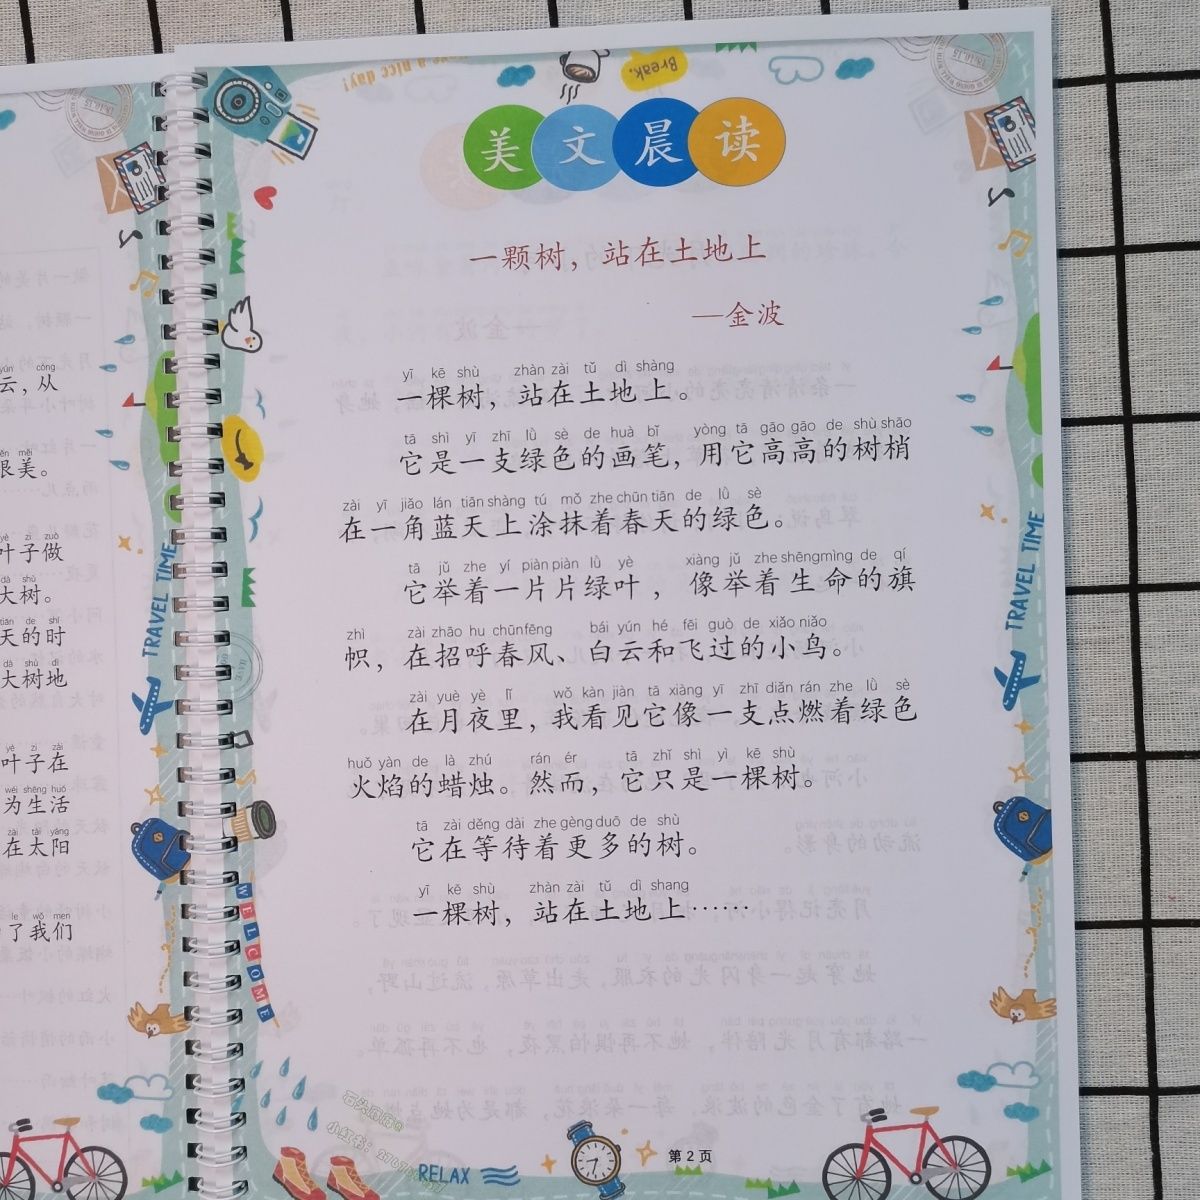 美文晨读
一颗树，站在土地上
—金波
yī kē shù zhàn zài tǔ dì shàng
一棵树，站在土地上。
tā shì yī zhī lǜ sè de huà bǐ yòng tā gāo gāo de shù shāo
它是一支绿色的画笔，用它高高的树梢
zài yī jiǎo lán tiān shàng tú mǒ zhe chūn tiān de lǜ sè
在一角蓝天上涂抹着春天的绿色。
tā jǔ zhe yí piàn piàn lǜ yè xiàng jǔ zhe shēng mìng de qí
它举着一片片绿叶，像举着生命的旗
zhì zài zhāo hu chūn fēng bái yún hé fēi guò de xiǎo niǎo
帜，在招呼春风、白云和飞过的小鸟。
zài yuè yè lǐ wǒ kàn jiàn tā xiàng yī zhī diǎn rán zhe lǜ sè
在月夜里，我看见它像一支点燃着绿色
huǒ yàn de là zhú rán ér tā zhǐ shì yì kē shù
火焰的蜡烛。然而，它只是一棵树。
tā zài děng dài zhe gèng duō de shù
它在等待着更多的树。
yī kē shù zhàn zài tǔ dì shang
一棵树，站在土地上……
第 2 页
RELAX
TRAVEL TIME
WELCOME
Break.
yún cóng
云，从
měi
很美。
yè zi zuò
叶子做
dà shù
大树。
tiān de shí
天的时
dà shù dì
大树地
yè zi zài
叶子在
wéi shēng huó
为生活
zài tài yáng
在太阳
le wǒ men
了我们
TRAVEL TIME